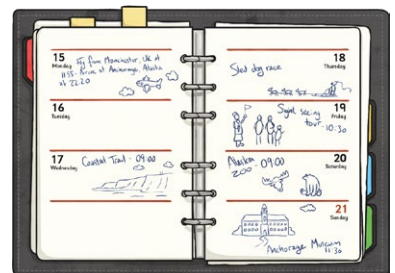 15
Monday
Fly from Manchester, UK at
11:55. Arrive at Anchorage, Alaska
at 22:20
16
Tuesday
17
Wednesday
Coastal Trail - 09:00
18
Thursday
Sled dog race
19
Friday
Sight seeing
tour - 10:30
20
Saturday
Alaskan - 09:00
zoo
21
Sunday
Anchorage Museum
11:30